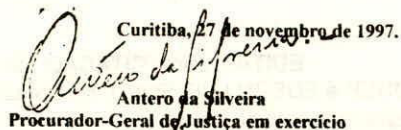 Curitiba, 27 de novembro de 1997.
Antero da Silveira
Antero da Silveira
Procurador-Geral de Justiça em exercício